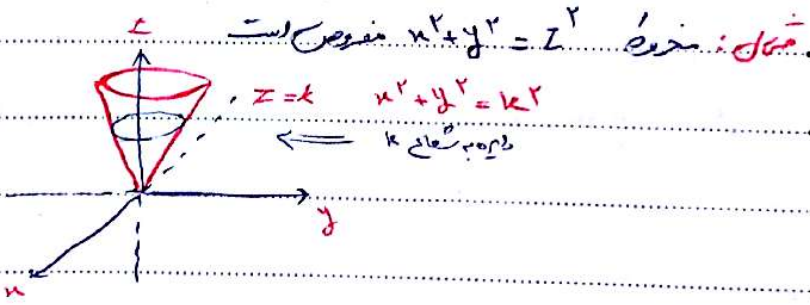 مثال: مخروط x² + y² = z² مفروض است
z
z = k x² + y² = k²
⇐ دایره به شعاع k
y
x